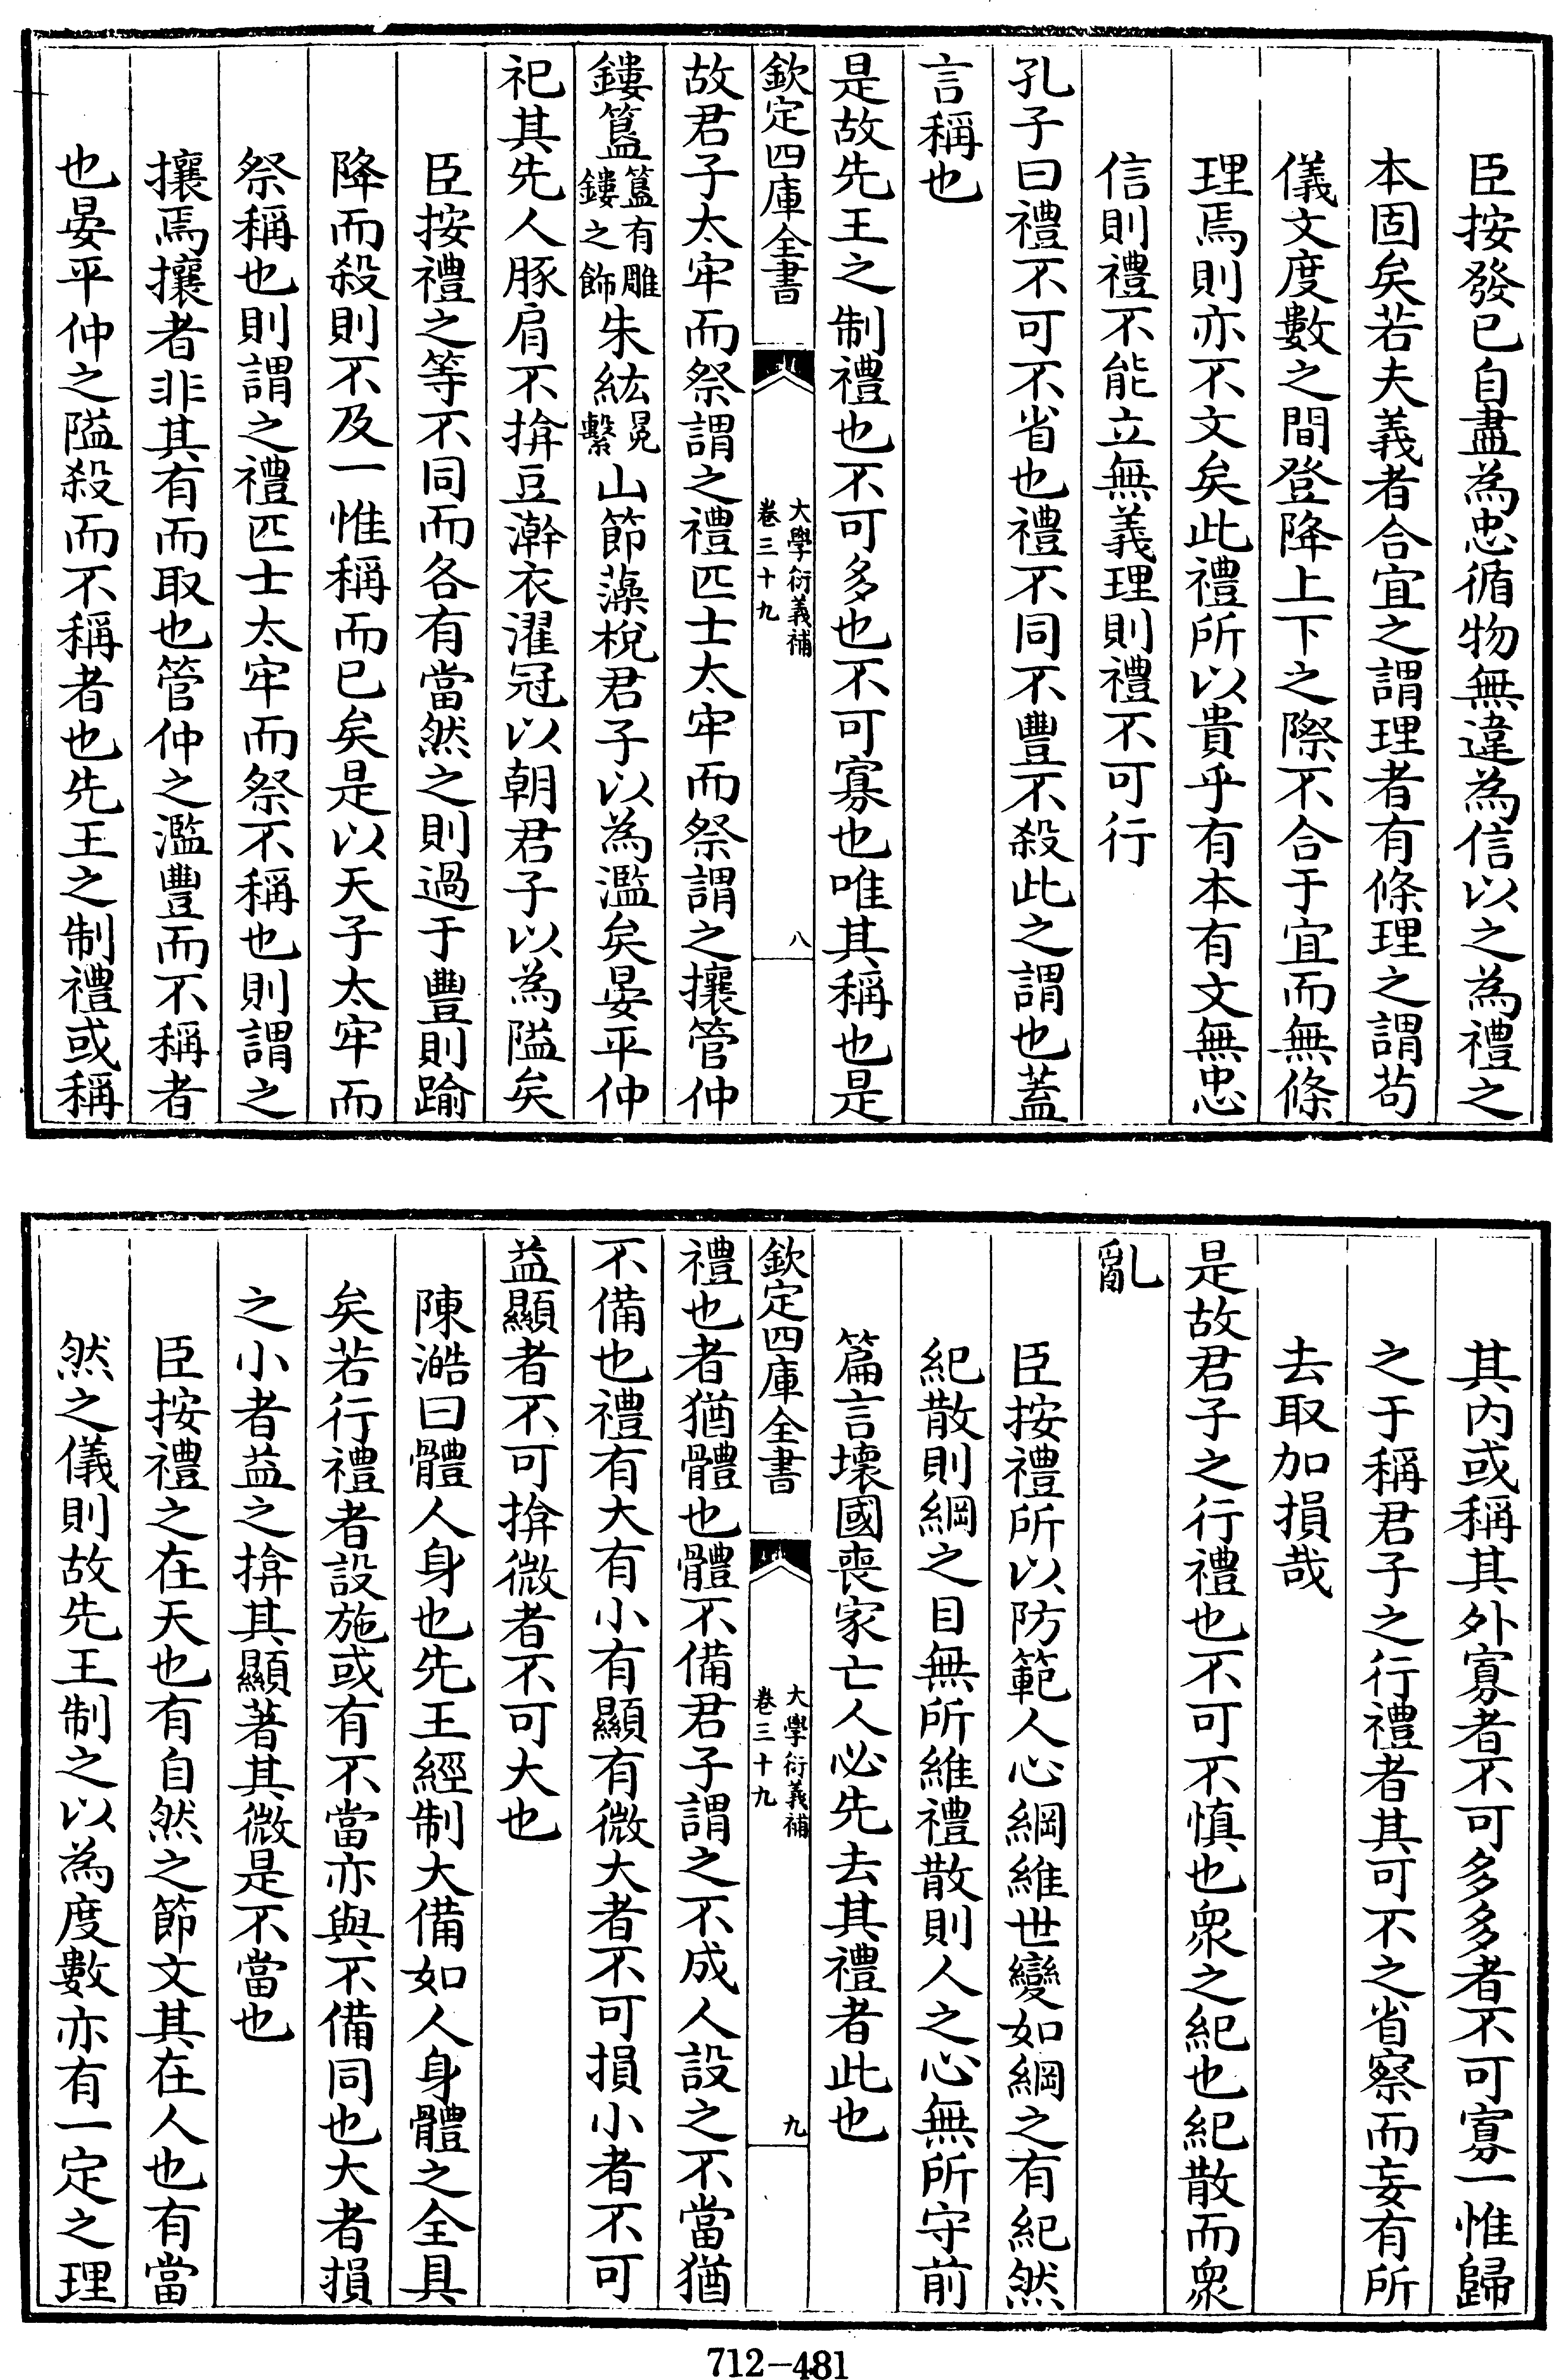 臣按發已自盡為忠循物無違為信以之為禮之
本固矣若夫義者合宜之謂理者有條理之謂茍
儀文度數之間登降上下之際不合于宜而無條
理焉則亦不文矣此禮所以貴乎有本有文無忠
信則禮不能立無義理則禮不可行
孔子曰禮不可不省也禮不同不豐不殺此之謂也蓋
言稱也
是故先王之制禮也不可多也不可寡也唯其稱也是
欽定四庫全書
大學衍義補
卷三十九
八
故君子太牢而祭謂之禮匹士太牢而祭謂之攘管仲
鏤簋簋有雕鏤之飾朱紘冕繫山節藻梲君子以為濫矣晏平仲
祀其先人豚肩不揜豆澣衣濯冠以朝君子以為隘矣
臣按禮之等不同而各有當然之則過于豐則踰
降而殺則不及一惟稱而已矣是以天子太牢而
祭稱也則謂之禮匹士太牢而祭不稱也則謂之
攘焉攘者非其有而取也管仲之濫豐而不稱者
也晏平仲之隘殺而不稱者也先王之制禮或稱
其內或稱其外寡者不可多多者不可寡一惟歸
之于稱君子之行禮者其可不之省察而妄有所
去取加損哉
是故君子之行禮也不可不慎也衆之紀也紀散而衆
亂
臣按禮所以防範人心綱維世變如綱之有紀然
紀散則綱之目無所維禮散則人之心無所守前
篇言壞國喪家亡人必先去其禮者此也
欽定四庫全書
大學衍義補
卷三十九
九
禮也者猶體也體不備君子謂之不成人設之不當猶
不備也禮有大有小有顯有微大者不可損小者不可
益顯者不可揜微者不可大也
陳澔曰體人身也先王經制大備如人身體之全具
矣若行禮者設施或有不當亦與不備同也大者損
之小者益之揜其顯著其微是不當也
臣按禮之在天也有自然之節文其在人也有當
然之儀則故先王制之以為度數亦有一定之理
712-481